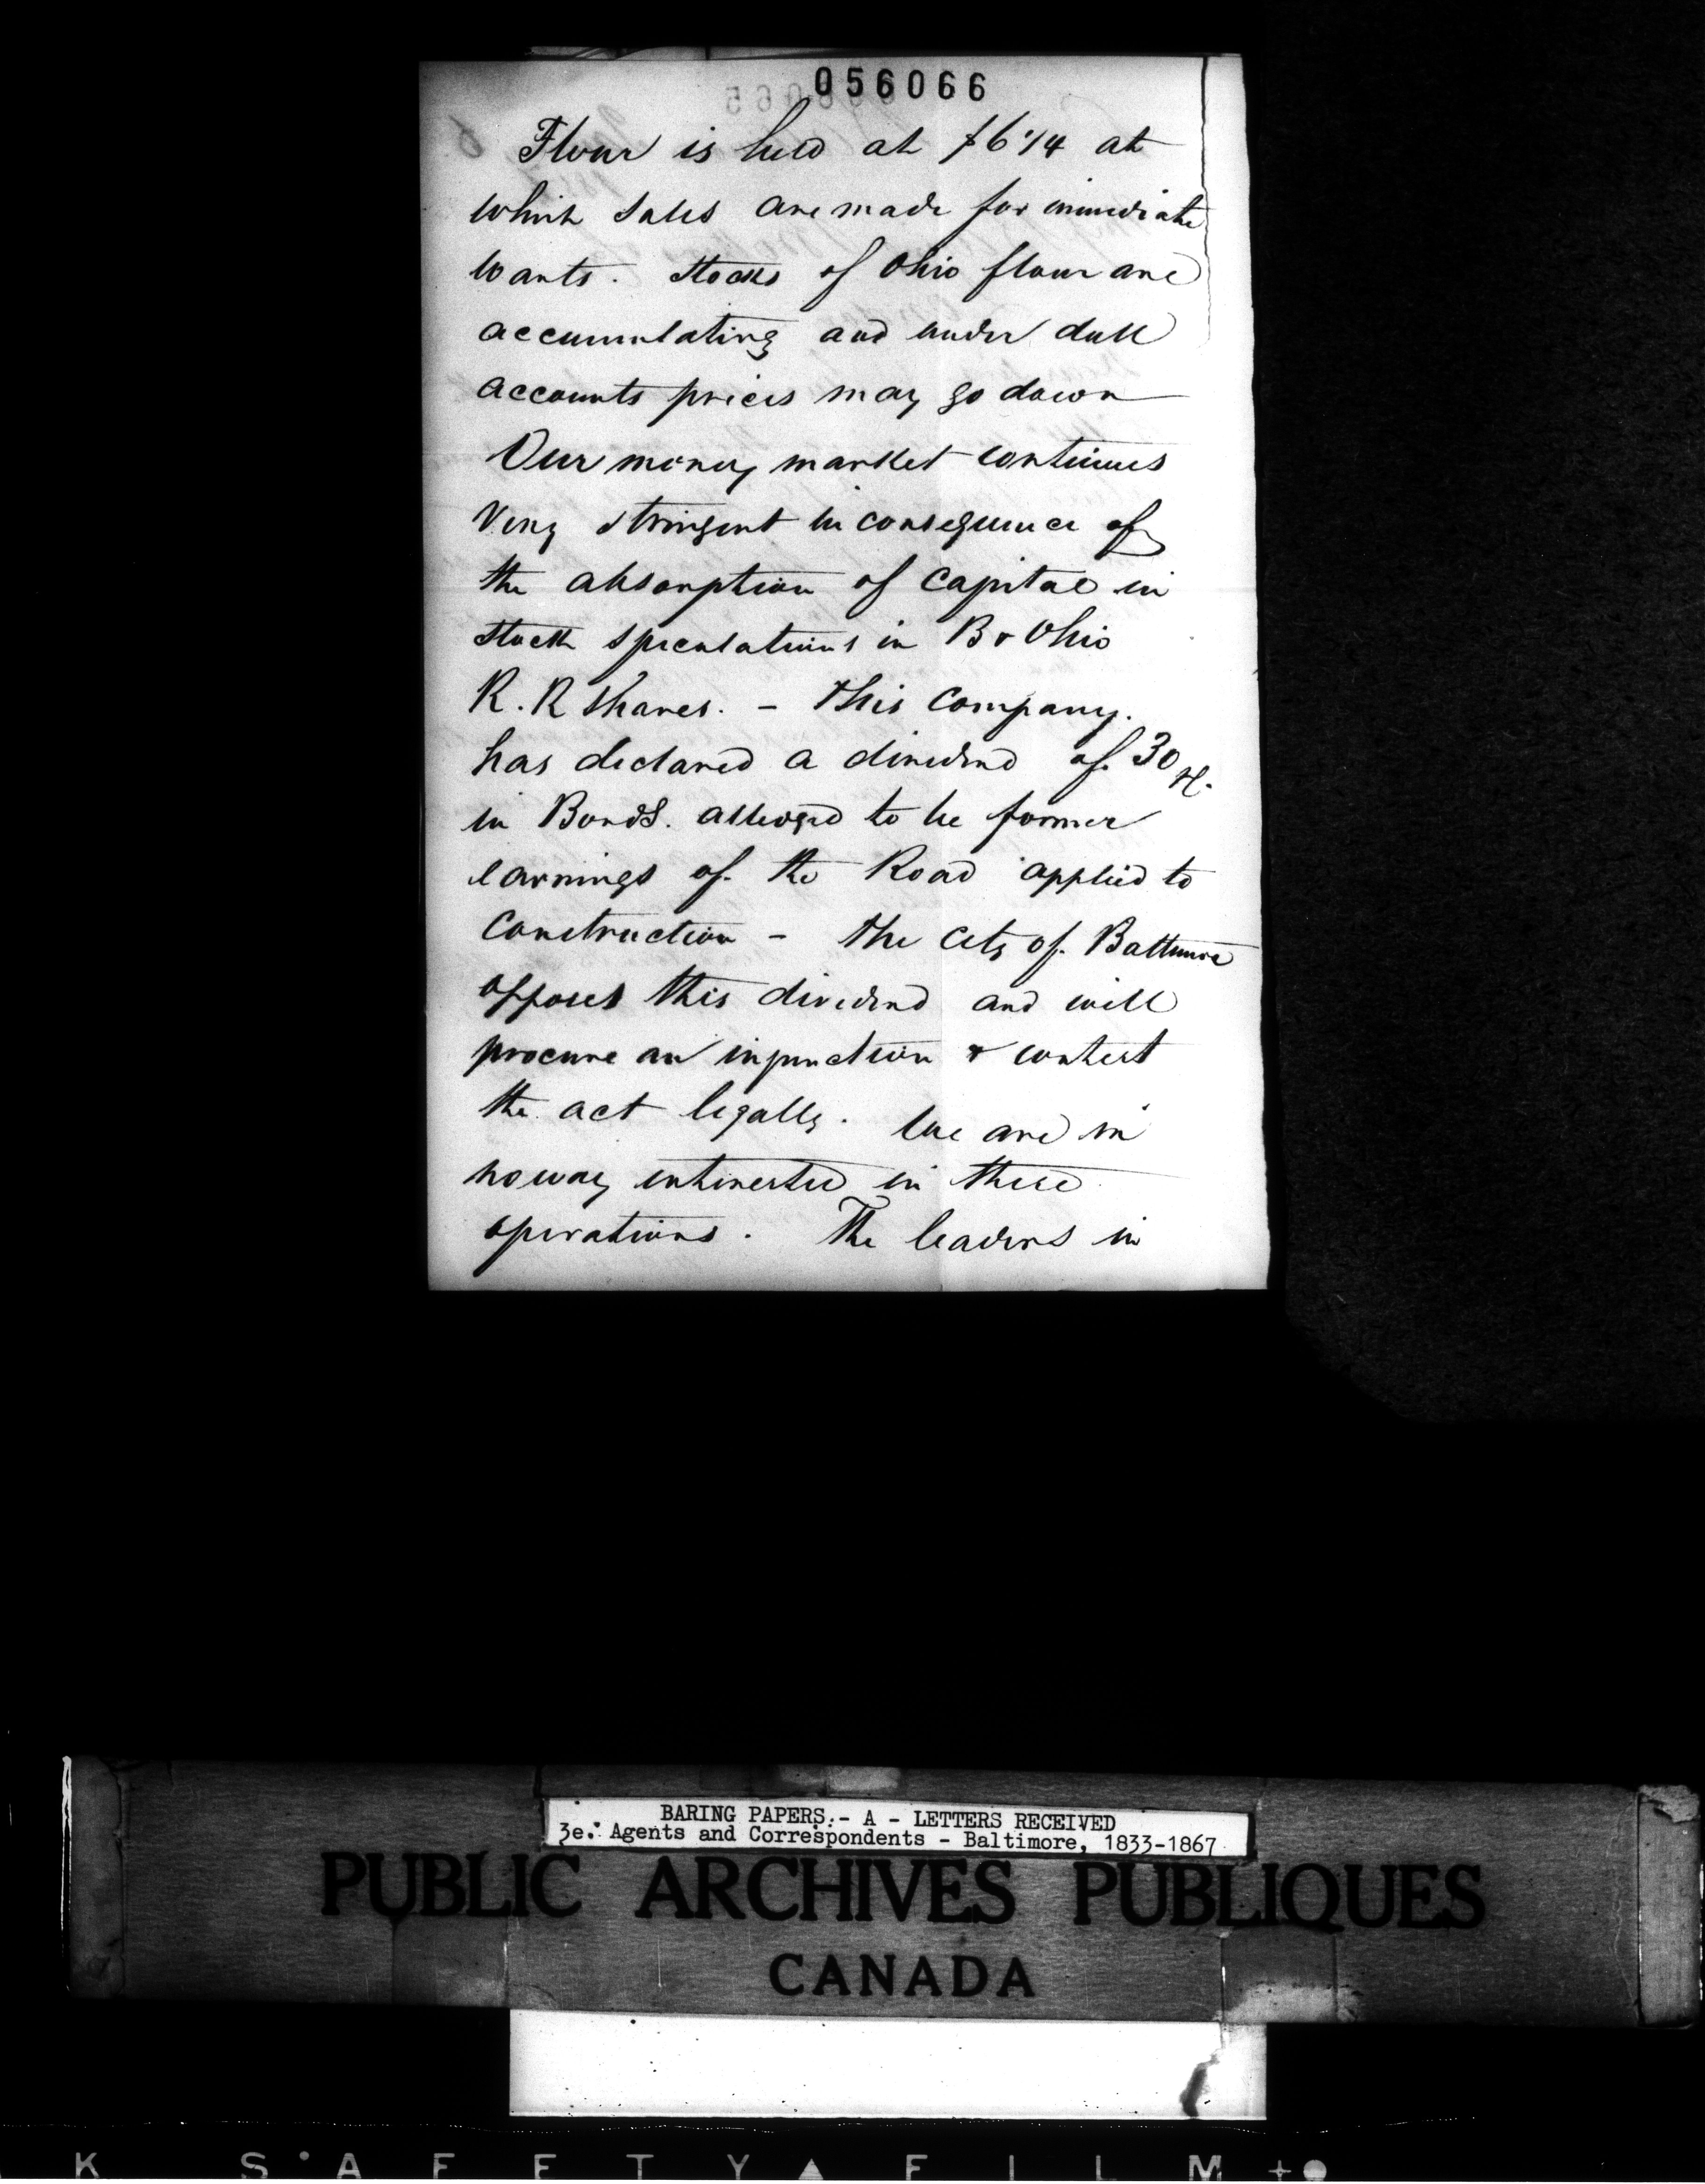 056066
Flour is held at $6 1/4 at
which sales are made for immediate
wants. Stocks of Ohio flour are
accumulating and under dull
accounts prices may go down
Our money market continues
very stringent in consequence of
the absorption of capital in
stock speculations in B & Ohio
R. R shares. - This Company.
has declared a dividend of 30
in Bonds. alleged to be former
earnings of the Road applied to
construction - the City of Baltimore
opposes this dividend and will
procure an injunction & contest
the act legally. We are in
no way interested in these
operations. The leaders in
BARING PAPERS.- A - LETTERS RECEIVED
3e. Agents and Correspondents - Baltimore, 1833-1867
PUBLIC ARCHIVES PUBLIQUES
CANADA
K SAFETY FILM